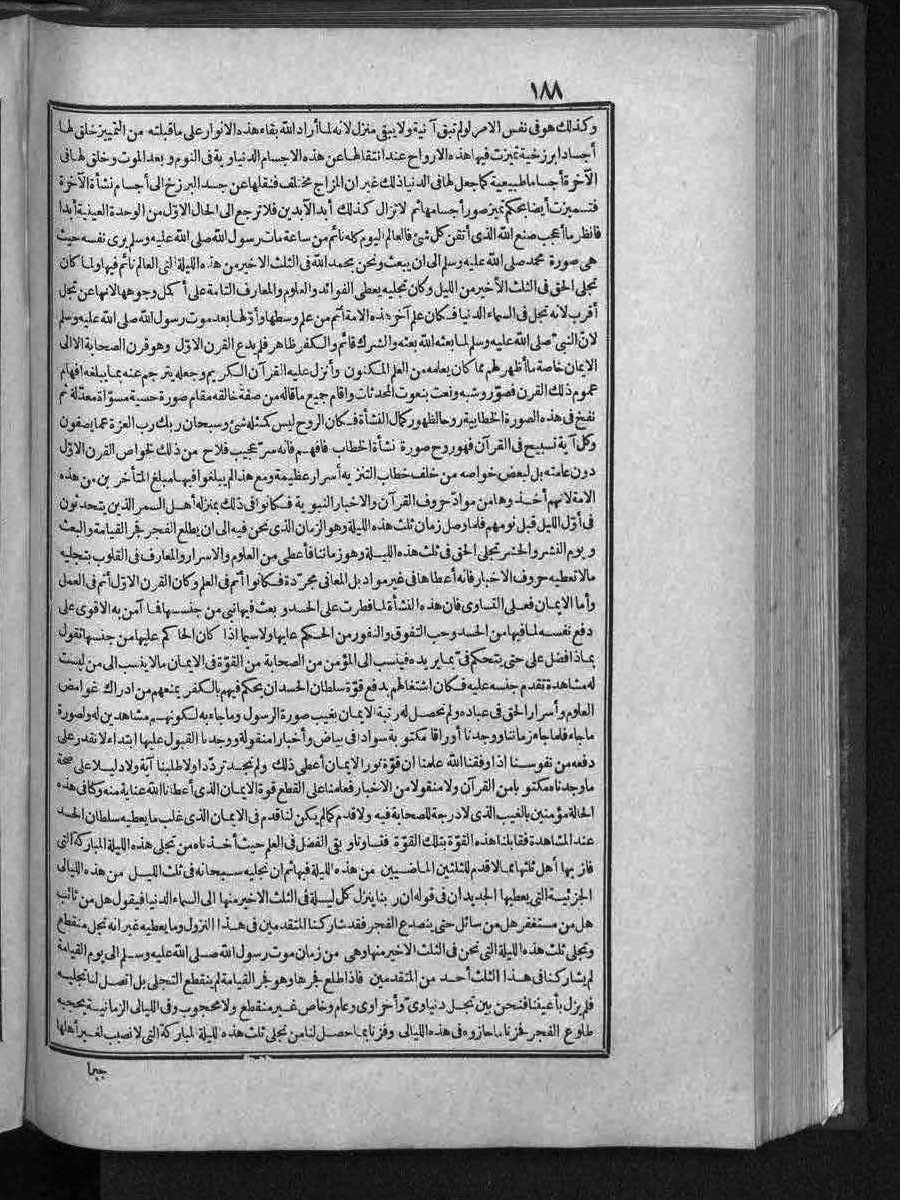 ١٨٨
وكذلك هو فى نفس الامر لولم تبق آنية ولا يبقى منزل لانه لما أراد الله بقاء هذه الانوار على ما قبلته من التمييز خلق لها
أجسادا برزخية تميزت فيها هذه الارواح عند انتقالها عن هذه الاجسام الدنياوية فى النوم وبعد الموت وخلق لها فى
الآخرة أجساما طبيعية كما جعل لها فى الدنيا ذلك غير ان المزاج مختلف فنقلها عن جسد البرزخ الى أجسام نشأة الآخرة
فتميزت أيضا بحكم تميز صور أجسامها ثم لا تزال كذلك أبد الآبدين فلا ترجع الى الحال الاوّل من الوحدة العينية أبدا
فانظر ما أعجب صنع الله الذى أتقن كل شئ فالعالم اليوم كله نائم من ساعة مات رسول الله صلى الله عليه وسلم يرى نفسه حيث
هى صورة محمد صلى الله عليه وسلم الى ان يبعث ونحن بحمد الله فى الثلث الاخير من هذه الليلة التى العالم نائم فيها ولما كان
تجلى الحق فى الثلث الأخير من الليل وكان تجليه يعطى الفوائد والعلوم والمعارف التامة على أكمل وجوهها لانها عن تجل
أقرب لانه تجل فى السماء الدنيا فكان علم آخر هذه الامة أتم من علم وسطها وأوّلها بعد موت رسول الله صلى الله عليه وسلم
لانّ النبىّ صلى الله عليه وسلم لما بعثه الله بعثه والشرك قائم والكفر ظاهر فلم يدع القرن الاوّل وهو قرن الصحابة الا الى
الايمان خاصة ما أظهر لهم مما كان يعلمه من العلم المكنون وأنزل عليه القرآن الكريم وجعله يترجم عنه بما يبلغه افهام
عموم ذلك القرن فصوّر وشبه ونعت بنعوت المحدثات وأقام جميع ما قاله من صفة خالقه مقام صورة حسية مسوّاة معدّلة ثم
نفخ فى هذه الصورة الخطابية روحا لظهور كمال النشأة فكان الروح ليس كمثله شئ وسبحان ربك رب العزة عما يصفون
وكل آية تسبيح فى القرآن فهو روح صورة نشأة الخطاب فافهم فانه سرّ عجيب فلاح من ذلك لخواص القرن الاوّل
دون عامته بل لبعض خواصه من خلف خطاب التنزيه أسرار عظيمة ومع هذا لم يبلغوا فيها مبلغ المتأخرين من هذه
الامة لانهم أخذوها من موادّ حروف القرآن والاخبار النبوية فكانوا فى ذلك بمنزلة أهل السمر الذين يتحدثون
فى أوّل الليل قبل نومهم فلما وصل زمان ثلث هذه الليلة وهو الزمان الذى نحن فيه الى ان يطلع الفجر فجر القيامة والبعث
ويوم النشر والحشر تجلى الحق فى ثلث هذه الليلة وهو زماننا فأعطى من العلوم والاسرار والمعارف فى القلوب بتجليه
مالا تعطيه حروف الاخبار فانه أعطاها فى غير مواد بل المعانى مجرّدة فكانوا أتم فى العلم وكان القرن الاوّل أتم فى العمل
وأما الايمان فعلى التساوى فان هذه النشأة لما فطرت على الحسد وبعث فيها نبى من جنسها فما آمن به الا قوى على
دفع نفسه لما فيها من الحسد وحب التفوّق والنفور من الحكم عليها ولا سيما اذا كان الحاكم عليها من جنسها تقول
بماذا فضل على حتى يتحكم فىّ بما يريده فينسب الى المؤمن من الصحابة من القوّة فى الايمان مالا ينسب الى من ليست
له مشاهدة تقدم جنسه عليه فكان اشتغالهم بدفع قوّة سلطان الحسد ان يحكم فيهم بالكفر يمنعهم من ادراك غوامض
العلوم وأسرار الحق فى عباده ولم تحصل له رتبة الايمان بغيب صورة الرسول وما جاء به لكونهم مشاهدين له ولصورة
ما جاء فلما جاء زماننا ووجدنا أوراقا مكتوبة سوادا فى بياض وأخبارا منقولة ووجدنا القبول عليها ابتداء لا نقدر على
دفعه من نفوسنا اذا وفقنا الله علمنا ان قوّة نور الايمان أعطى ذلك ولم نجد تردّدا ولا طلبنا آية ولا دليلا على صحة
ما وجدناه مكتوبا من القرآن ولا منقولا من الاخبار فعلمنا على القطع قوة الايمان الذى أعطانا الله عناية منه وكنا فى هذه
الحالة مؤمنين بالغيب الذى لا درجة للصحابة فيه ولا قدم كما لم يكن لنا قدم فى الايمان الذى غلب ما يعطيه سلطان الحسد
عند المشاهدة فقابلنا هذه القوّة بتلك القوّة فتساوينا وبقى الفضل فى العلم حيث أخذناه من تجلى هذه الليلة المباركة التى
فاز بها أهل ثلثها مما لا قدم للثلثين الماضيين من هذه الليلة فيها ثم ان تجليه سبحانه فى ثلث الليل من هذه الليالى
الجزئية التى يعطيها الجديدان فى قوله ان ربنا ينزل كل ليلة فى الثلث الاخير منها الى السماء الدنيا فيقول هل من تائب
هل من مستغفر هل من سائل حتى ينصدع الفجر فقد شاركنا المتقدمين فى هذا النزول وما يعطيه غير انه تجل منقطع
وتجلى ثلث هذه الليلة التى نحن فى الثلث الاخير منها وهى من زمان موت رسول الله صلى الله عليه وسلم الى يوم القيامة
لم يشاركنا فى هذا الثلث أحد من المتقدمين فاذا طلع فجرها وهو فجر القيامة لم ينقطع التجلى بل اتصل لنا تجليه
فلم يزل بأعيننا فنحن بين تجل دنياوىّ وأخراوى وعام وخاص غير منقطع ولا محجوب وفى الليالى الزمانية يحجبه
طلوع الفجر فحزنا ما حازوه فى هذه الليالى وفزنا بما حصل لنا من تجلى ثلث هذه الليلة المباركة التى لا نصيب لغير أهلها